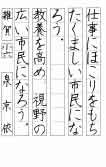 仕事にほこりをもち
たくましい市民にな
ろう。
教養を高め 視野の
広い市民になろう。
雅賀 小六 泉京依